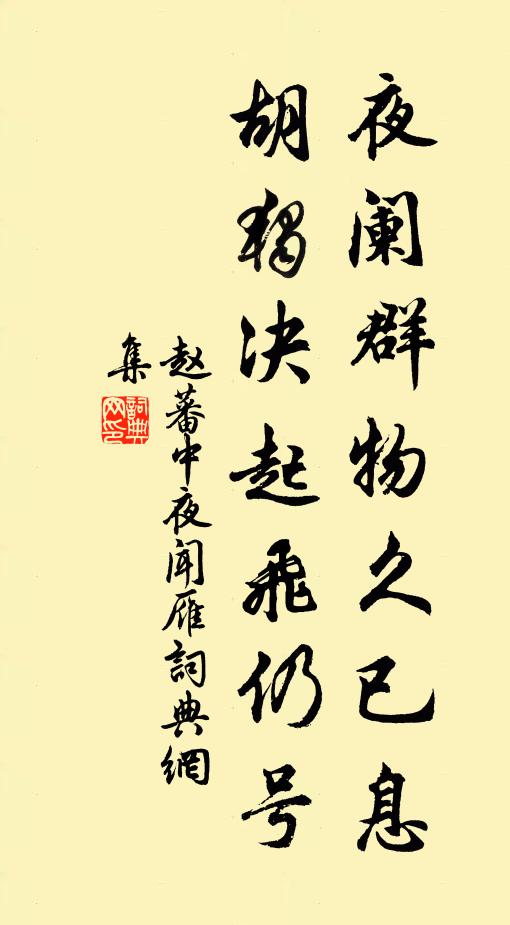 夜阑群物久已息
胡独决起飛仍号
赵蕃中夜闻雁詞典網
集
詞典网印